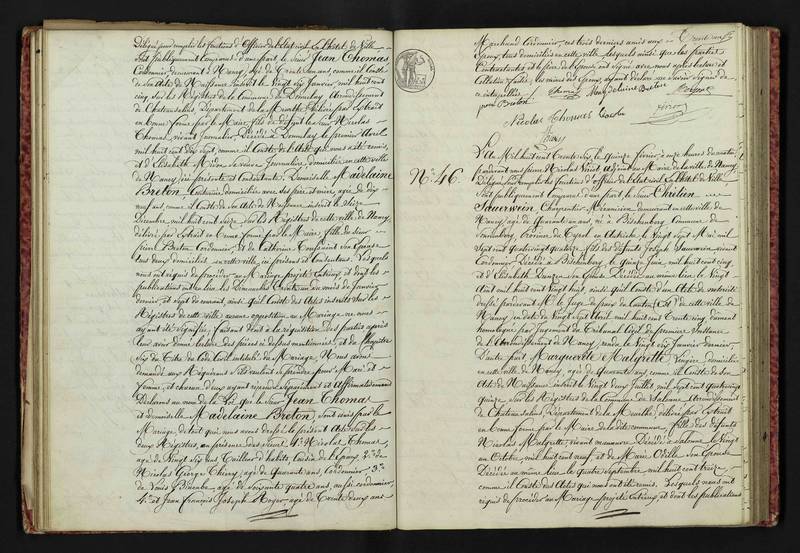 Délégué pour remplir les fonctions d'Officier de l'état civil à l'hôtel de Ville
Sont publiquement comparus d'une part, le Sieur Jean Thomas
Cordonnier, demeurant à Nancy, âgé de Trente un ans, comme il conste
de son Acte de Naissance inscrit le Vingt six Janvier, mil huit cent
cinq sur les Registres de la Commune de Donnelay Arrondissement
de Chateausalins, Département de la Meurthe délivré par Extrait
en bonne forme par le Maire, fils de défunt le Sieur Nicolas
Thomas, vivant Journalier, Décédé à Donnelay le premier Avril
mil huit cent dix sept, comme il conste de l'Acte qui nous a été remis,
et d'Elisabeth sa veuve Journalière, domiciliée en cette ville
de Nancy, ici présente et Consentante. Demoiselle Madelaine
Breton Couturière domiciliée avec ses père et mère, âgée de dix
neuf ans, comme il conste de son Acte de Naissance inscrit le seize
Décembre, mil huit cent seize sur les Registres de cette ville de Nancy
délivré par Extrait en bonne forme par le Maire, fille du Sieur
Pierre Breton Cordonnier, et de Catherine Toussaint son Epouse
tous deux domiciliés en cette ville, ici présents et Consentans. Lesquels
nous ont requis de procéder au Mariage projeté entr'eux, et dont les
publications ont eu lieu les Dimanches Trente un du mois de Janvier
dernier, et sept du courant, ainsi qu'il conste des Actes inscrits sur les
Registres de cette ville; aucune opposition au Mariage ne nous
ayant été signifiée, faisant droit à la réquisition des parties après
leur avoir donné lecture des pièces ci dessus mentionnées, et du Chapitre
Six du Titre du Code Civil intitulé du Mariage, Nous avons
demandé aux Requérans s'ils veulent se prendre pour Mari et
Femme, et chacun d'eux ayant répondu séparément et Affirmativement
Déclarons au nom de la Loi, que le Sieur Jean Thomas
et demoiselle Madelaine Breton, sont unis par le
Mariage, de tout quoi nous avons dressé le présent Acte sur les
deux Registres, en présence des Sieurs 1° Nicolas Thomas,
âgé de Vingt six ans, Tailleur d'habits, cousin de l'Epoux, 2° de
Nicolas George Thiery, âgé de Quarante ans, Cordonnier, 3°
de Louis, âgé de soixante quatre ans, aussi cordonnier,
4° et Jean François Joseph Royer, âgé de Trente deux ans
Marchand Cordonnier, ces trois derniers amis aux
Epoux, tous domiciliés en cette ville, lesquels ainsi que les parties
Contractantes et le père de l'épouse ont signé avec nous après lecture et
Collation faite, les mères des Epoux, ayant déclaré ne savoir signer de
ce interpellées
Thomas Madelaine Breton
pierre Breton
Nicolas Thomas
Thiery
N° 46.
L'An Mil huit cent Trente Six, le quinze février, à onze heures du matin,
pardevant nous Pierre Nicolas Adjoint au Maire de la ville de Nancy
Délégué pour remplir les fonctions d'officier de l'état civil à l'hôtel de Ville
Sont publiquement comparus d'une part, le Sieur Chrétien
Sauerwein Charpentier Mécanicien demeurant en cette ville de
Nancy, âgé de Quarante un ans, né à Bichenberg Commune de
Province du Tyrol en Autriche, le Vingt sept Mai mil
Sept cent quatre vingt quatorze, fils des défunts Joseph Sauerwein vivant
Cordonnier Décédé à Bichenberg, le quinze Juin, mil huit cent cinq,
et d'Elisabeth son épouse Décédée au même lieu le Vingt
Août mil huit cent vingt huit, ainsi qu'il conste d'un Acte de notoriété
dressé pardevant M. le Juge de paix du Canton (Est) de cette ville de
Nancy, en date du Vingt sept Avril mil huit cent Trente cinq, dûment
homologué par Jugement du Tribunal Civil de première Instance
de l'Arrondissement de Nancy, rendu le Vingt six Janvier dernier.
D'autre part, Marguerite Malgrette, Lingère, domiciliée
en cette ville de Nancy, âgée de Quarante ans, comme il conste de son
Acte de Naissance inscrit le Vingt deux Juillet, mil sept cent quatre vingt
quinze sur les Registres de la Commune de Salonne Arrondissement
de Chateausalins, Département de la Meurthe, délivré par Extrait
en bonne forme par le Maire de la dite commune, fille des défunts
Nicolas Malgrette, vivant manœuvre Décédé à Salonne le Vingt
un Octobre, mil huit cent neuf, et de Marie Odille, son Epouse
Décédée au même lieu le quatre Septembre, mil huit cent treize,
comme il conste des Actes qui nous ont été remis. Lesquels nous ont
requis de procéder au Mariage projeté entr'eux, et dont les publications